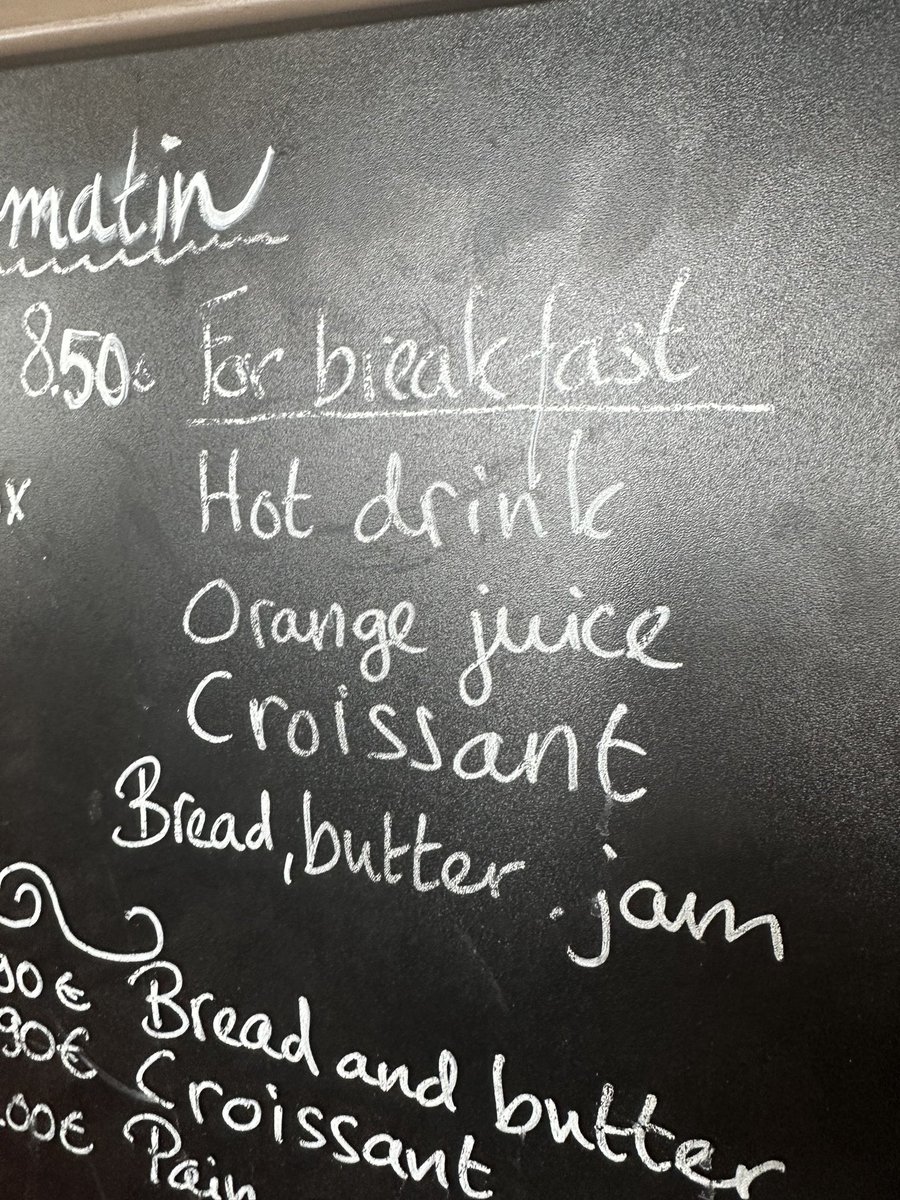 matin
8.50€ For breakfast
x Hot drink
Orange juice
Croissant
Bread, butter. jam
90€ Bread and butter
90€ Croissant
.00€ Pain